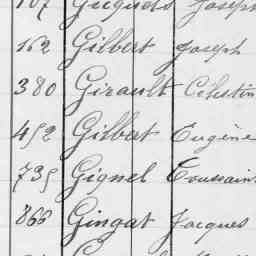 162 Gilbert Joseph
380 Girault Célestin
452 Gilbert Eugène
735 Gignel Toussain
866 Gingat Jacques